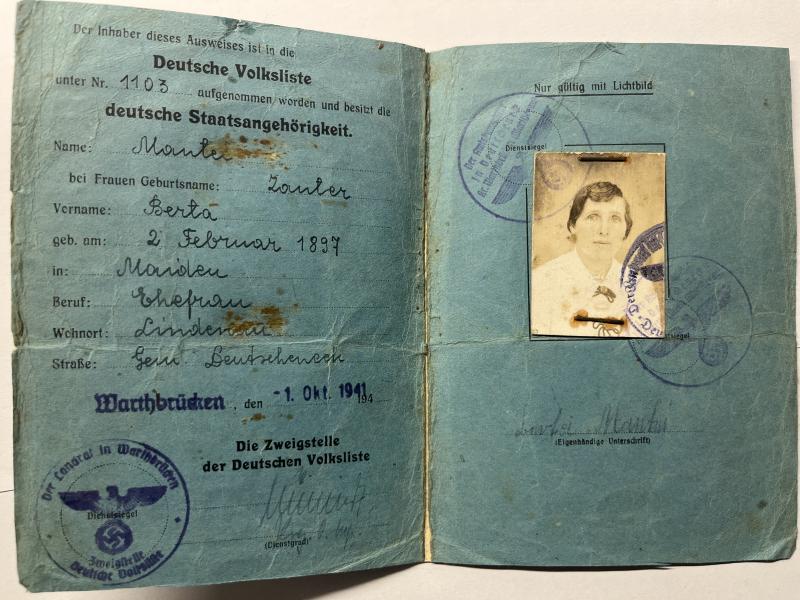 Der Inhaber dieses Ausweises ist in die
Deutsche Volksliste
unter Nr. 1103 aufgenommen worden und besitzt die
deutsche Staatsangehörigkeit.
Name: Mantei
bei Frauen Geburtsname: Zanter
Vorname: Berta
geb. am: 2 Februar 1897
in: Maiden
Beruf: Ehefrau
Wohnort: Lindenau
Straße: Gem.
Warthbrücken, den -1. Okt. 1941 194
Die Zweigstelle
der Deutschen Volksliste
(Dienstgrad)
Der Landrat in Warthbrücken
Dienstsiegel
Zweigstelle
Deutsche Volksliste
Nur gültig mit Lichtbild
Dienstsiegel
(Eigenhändige Unterschrift)